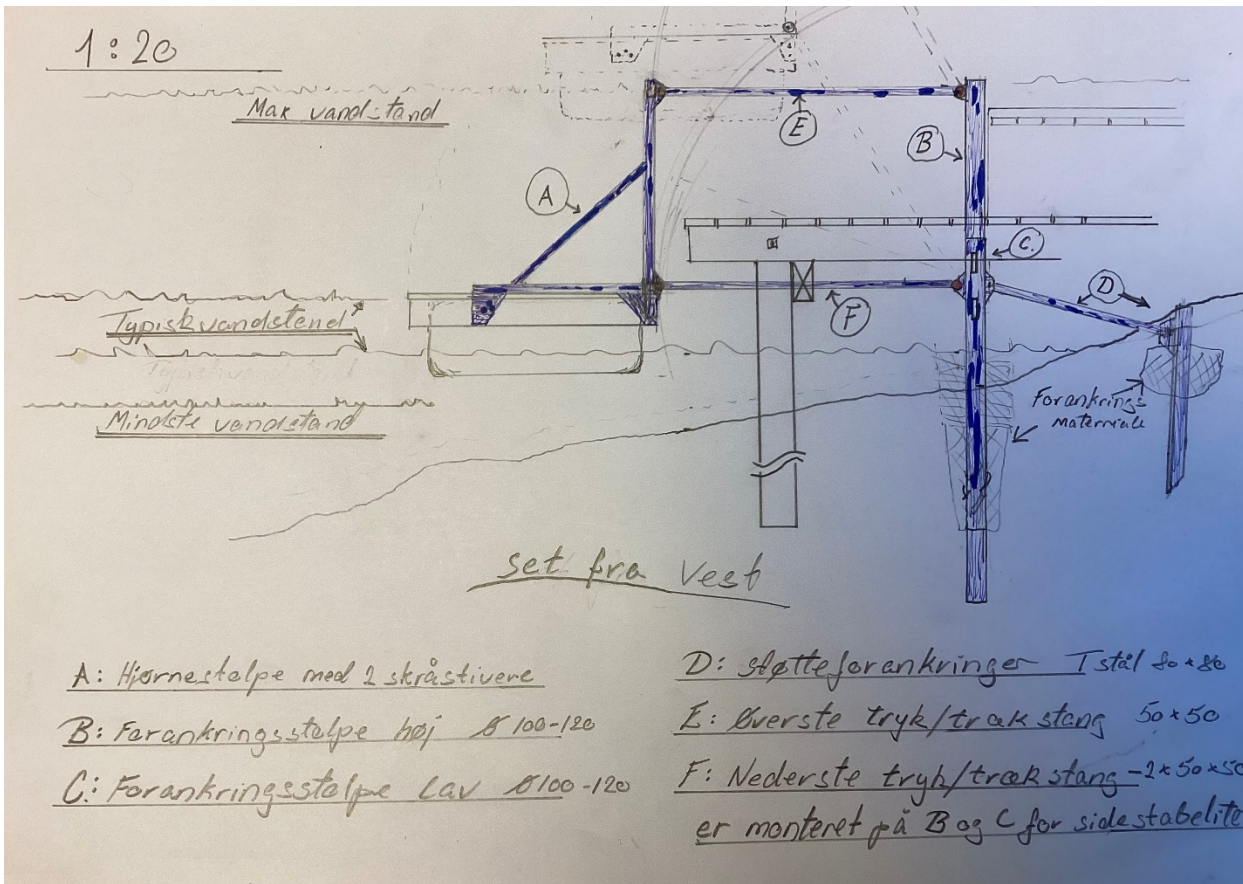 1:20
Max vandstand
E
B
A
C.
D
Typisk vandstend
F
Mindste vandstand
Forankrings
materriale
set fra Vest
A: Hjørnestolpe med 2 skråstivere
B: Forankringsstolpe høj Ø 100-120
C: Forankringsstolpe Lav Ø100-120
D: støtteforankringer I stål 80*80
E: Øverste tryk/træk stang 50*50
F: Nederste tryk/trækstang -2*50*50
er monteret på B og C for sidestabelite